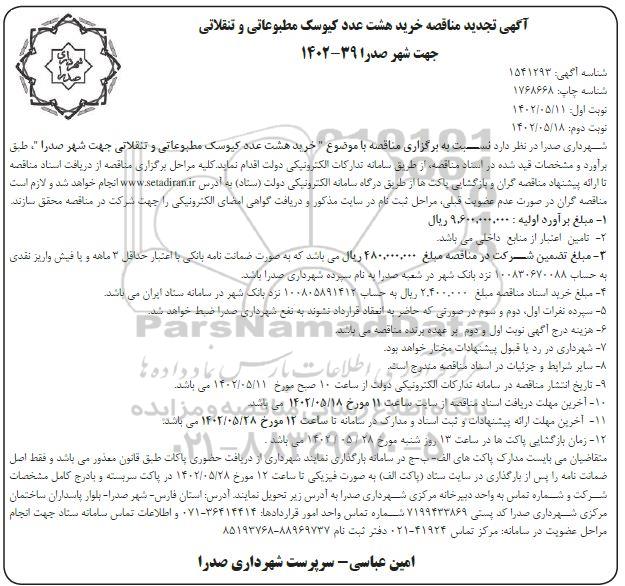 آگهی تجدید مناقصه خرید هشت عدد کیوسک مطبوعاتی و تنقلاتی
جهت شهر صدرا ۳۹-۱۴۰۲
شهرداری صدرا
شناسه آگهی: ۱۵۴۱۲۹۳
شناسه چاپ: ۱۷۶۸۶۶۸
نوبت اول: ۱۴۰۲/۰۵/۱۱
نوبت دوم: ۱۴۰۲/۰۵/۱۸
شهرداری صدرا در نظر دارد نسبت به برگزاری مناقصه با موضوع " خرید هشت عدد کیوسک مطبوعاتی و تنقلاتی جهت شهر صدرا "، طبق
برآورد و مشخصات قید شده در اسناد مناقصه، از طریق سامانه تدارکات الکترونیکی دولت اقدام نماید.کلیه مراحل برگزاری مناقصه از دریافت اسناد مناقصه
تا ارائه پیشنهاد مناقصه گران و بازگشایی پاکت ها از طریق درگاه سامانه الکترونیکی دولت (ستاد) به آدرس www.setadiran.ir انجام خواهد شد و لازم است
مناقصه گران در صورت عدم عضویت قبلی، مراحل ثبت نام در سایت مذکور و دریافت گواهی امضای الکترونیکی را جهت شرکت در مناقصه محقق سازند.
۱- مبلغ برآورد اولیه : ۹,۶۰۰,۰۰۰,۰۰۰ ریال
۲- تامین اعتبار از منابع داخلی می باشد.
۳- مبلغ تضمین شرکت در مناقصه مبلغ ۴۸۰,۰۰۰,۰۰۰ ریال می باشد که به صورت ضمانت نامه بانکی با اعتبار حداقل ۳ ماهه و یا فیش واریز نقدی
به حساب ۱۰۰۸۳۰۶۷۰۰۸۸ نزد بانک شهر در شعبه صدرا به نام سپرده شهرداری صدرا باشد.
۴- مبلغ خرید اسناد مناقصه مبلغ ۲,۴۰۰,۰۰۰ ریال به حساب ۱۰۰۸۰۵۸۹۱۴۱۲ نزد بانک شهر در سامانه ستاد ایران می باشد.
۵- سپرده نفرات اول، دوم و سوم در صورتی که حاضر به انعقاد قرارداد نشوند به نفع شهرداری صدرا ضبط خواهد شد.
۶- هزینه درج آگهی نوبت اول و دوم بر عهده برنده مناقصه می باشد.
۷- شهرداری در رد یا قبول پیشنهادات مختار خواهد بود.
۸- سایر شرایط و جزئیات در اسناد مناقصه مندرج است.
۹- تاریخ انتشار مناقصه در سامانه تدارکات الکترونیکی دولت از ساعت ۱۰ صبح مورخ ۱۴۰۲/۰۵/۱۱ می باشد.
۱۰- آخرین مهلت دریافت اسناد مناقصه از سایت ساعت ۱۱ مورخ ۱۴۰۲/۰۵/۱۸ می باشد.
۱۱- آخرین مهلت ارائه پیشنهادات و ثبت اسناد و مدارک در سامانه تا ساعت ۱۲ مورخ ۱۴۰۲/۰۵/۲۸ می باشد:
۱۲- زمان بازگشایی پاکت ها در ساعت ۱۳ روز شنبه مورخ ۲۸ / ۰۵ / ۱۴۰۲ می باشد .
متقاضیان می بایست مدارک پاکت های الف- ب-ج در سامانه بارگذاری نمایند شهرداری از دریافت حضوری پاکات طبق قانون معذور می باشد و فقط اصل
ضمانت نامه را پس از بارگذاری در سایت ستاد (پاکت الف) به صورت فیزیکی تا ساعت ۱۲ مورخ ۱۴۰۲/۰۵/۲۸ در پاکت سربسته و بادرج کامل مشخصات
شرکت و شماره تماس به واحد دبیرخانه مرکزی شهرداری صدرا به آدرس زیر تحویل نمایند. آدرس: استان فارس- شهر صدرا- بلوار پاسداران ساختمان
مرکزی شهرداری صدرا کد پستی ۷۱۹۹۴۳۳۸۶۹ شماره تماس واحد امور قراردادها: ۳۶۴۱۴۴۱۴-۰۷۱ و اطلاعات تماس سامانه ستاد جهت انجام
مراحل عضویت در سامانه: مرکز تماس ۴۱۹۲۴-۰۲۱ دفتر ثبت نام ۸۸۹۶۹۷۳۷-۸۵۱۹۳۷۶۸
امین عباسی- سرپرست شهرداری صدرا